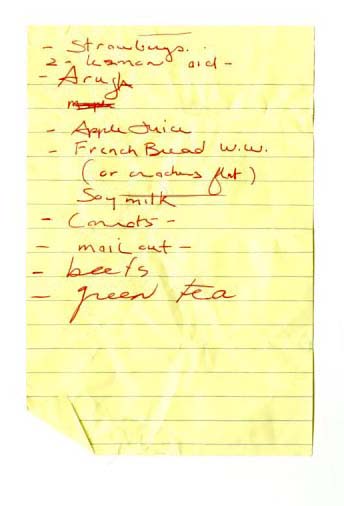 - Strawburys.
2 - Leman aid -
- Arugla
- Apple Juice
- French Bread w.w.
(or crackers flat)
Soy milk
- Carrots -
- mail out -
- beets
- green tea